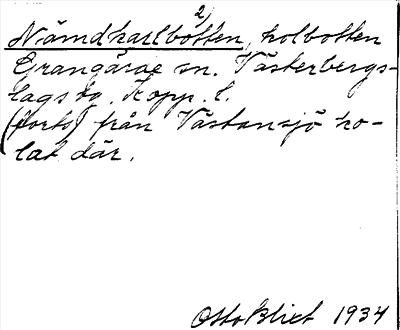 2)
Nämdkarlbotten, kolbotten
Grangärde sn. Västerbergs-
lags tg. Kopp. l.
(forts) från Västansjö ko-
lat där.
Otto Blixt 1934